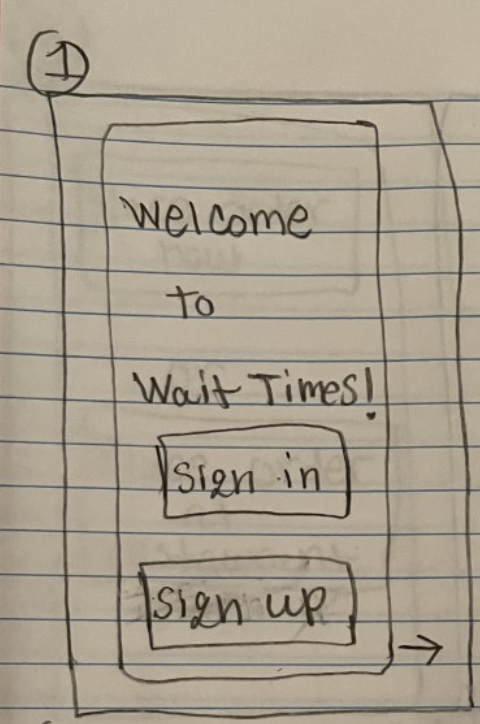 1
Welcome
to
Wait Times!
sign in
sign up
→